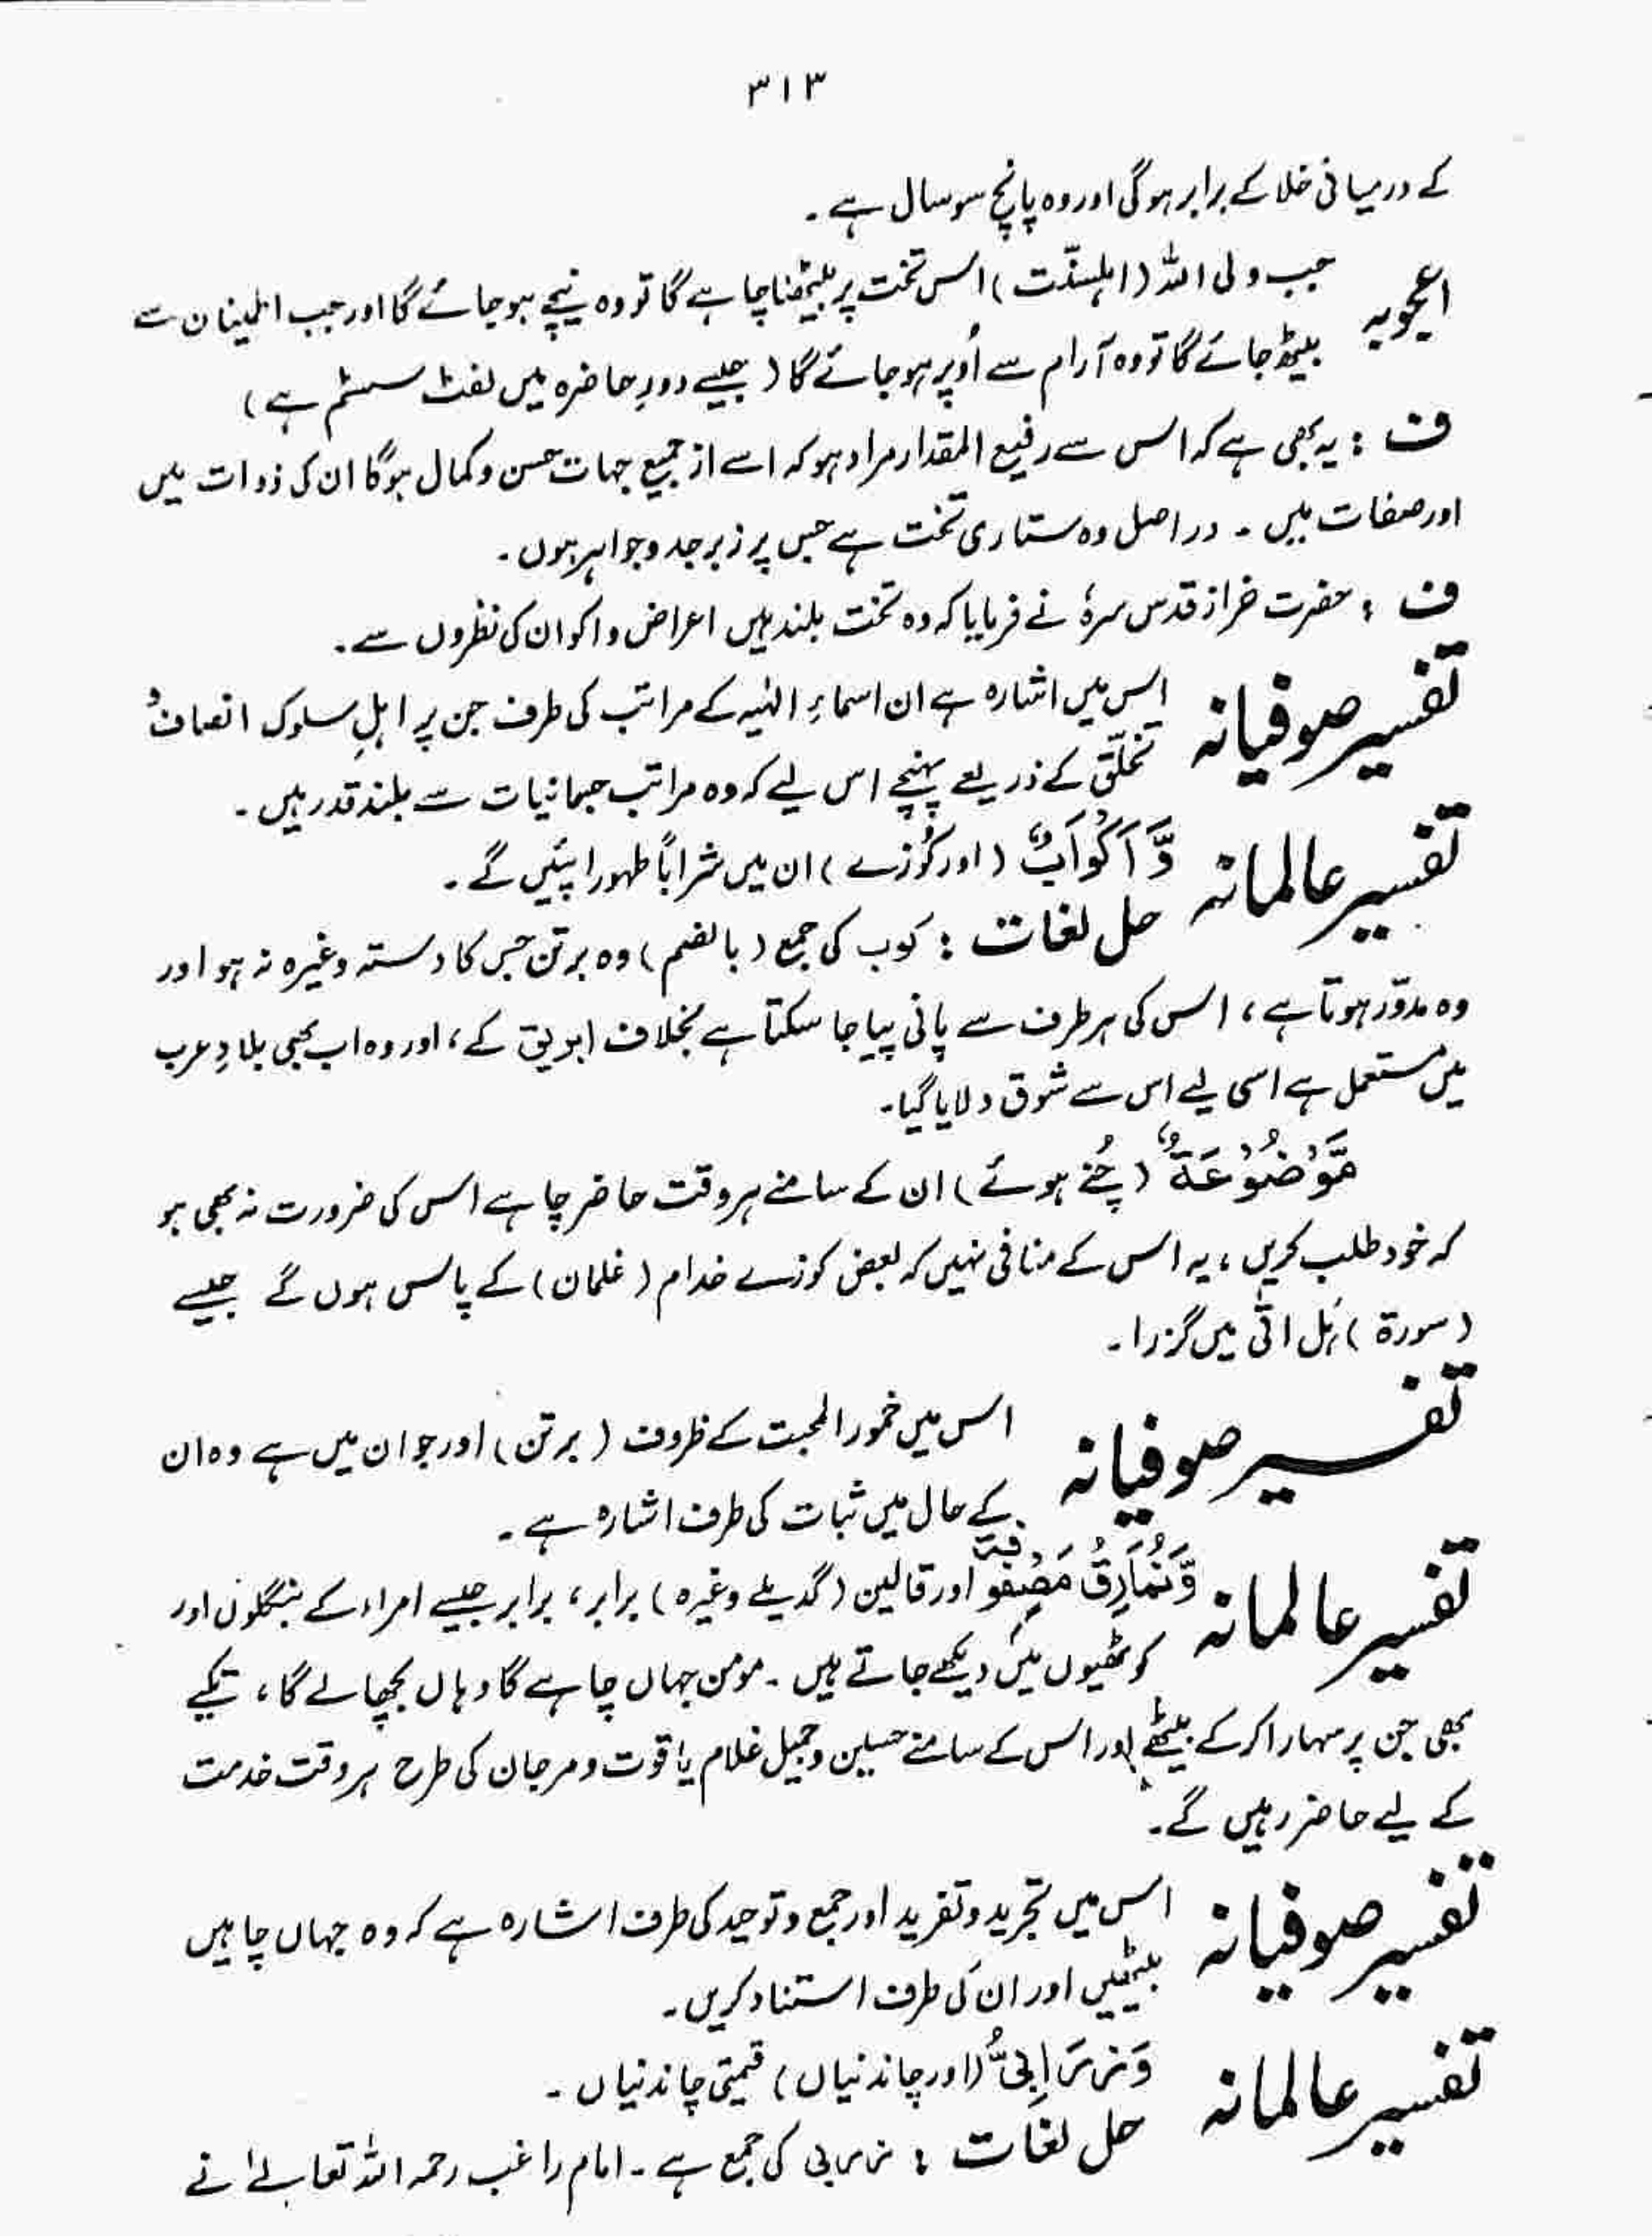 ٣١٣
کے درمیانی خلا کے برابر ہوگی اور وہ پانچ سو سال ہے ۔
اعجوبہ جب ولی اللہ (اہلسنّت) اس تخت پر بیٹھنا چاہے گا تو وہ نیچے ہو جائے گا اور جب اطمینان سے
بیٹھ جائے گا تو وہ آرام سے اُوپر ہو جائے گا (جیسے دورِ حاضرہ میں لفٹ سسٹم ہے)
ف : یہ بھی ہے کہ اس سے رفیع المقدار مراد ہو کہ اسے از جمیع جہات حسن و کمال ہوگا ان کی ذوات میں
اور صفات میں ۔ دراصل وہ ستاری تخت ہے جس پر زبرجد و جواہر ہوں ۔
ف : حضرت خراز قدس سرہٗ نے فرمایا کہ وہ تخت بلند ہیں اعراض و اکوان کی نظروں سے ۔
تفسیر صوفیانہ اس میں اشارہ ہے ان اسماءِ الٰہیہ کے مراتب کی طرف جن پر اہلِ سلوک اتصاف و
تخلّق کے ذریعے پہنچے اس لیے کہ وہ مراتب جسمانیات سے بلند قدر ہیں ۔
تفسیر عالمانہ وَّ اَکْوَابٌ (اور کُوزے) ان میں شراباً طہورا پئیں گے ۔
حل لغات : کوب کی جمع (بالضم) وہ برتن جس کا دستہ وغیرہ نہ ہو اور
وہ مدوّر ہوتا ہے ، اس کی ہر طرف سے پانی پیا جا سکتا ہے بخلاف ابریق کے ، اور وہ اب بھی بلادِ عرب
میں مستعمل ہے اسی لیے اس سے شوق دلایا گیا ۔
مَّوْضُوْعَةٌ (چُنے ہوئے) ان کے سامنے ہر وقت حاضر چاہے اس کی ضرورت نہ بھی ہو
کہ خود طلب کریں ، یہ اس کے منافی نہیں کہ بعض کوزے خدام (غلمان) کے پاس ہوں گے جیسے
(سورۃ) ہَل اتٰی میں گزرا ۔
تفسیر صوفیانہ اس میں خمور المحبت کے ظروف (برتن) اور جو ان میں ہے وہ ان
کے حال میں ثبات کی طرف اشارہ ہے ۔
تفسیر عالمانہ وَّنَمَارِقُ مَصْفُوْفَةٌ اور قالین (گدیلے وغیرہ) برابر ، برابر جیسے امراء کے بنگلوں اور
کوٹھیوں میں دیکھے جاتے ہیں ۔ مومن جہاں چاہے گا وہاں بچھا لے گا ، تکیے
بھی جن پر سہارا کر کے بیٹھے اور اس کے سامنے حسین و جمیل غلام یاقوت و مرجان کی طرح ہر وقت خدمت
کے لیے حاضر رہیں گے ۔
تفسیر صوفیانہ اس میں تجرید و تفرید اور جمع و توحید کی طرف اشارہ ہے کہ وہ جہاں چاہیں
بیٹھیں اور ان کی طرف استناد کریں ۔
تفسیر عالمانہ وَزَرَابِیُّ (اور چاندنیاں) قیمتی چاندنیاں ۔
حل لغات : زربی کی جمع ہے ۔ امام راغب رحمہ اللہ تعالیٰ نے